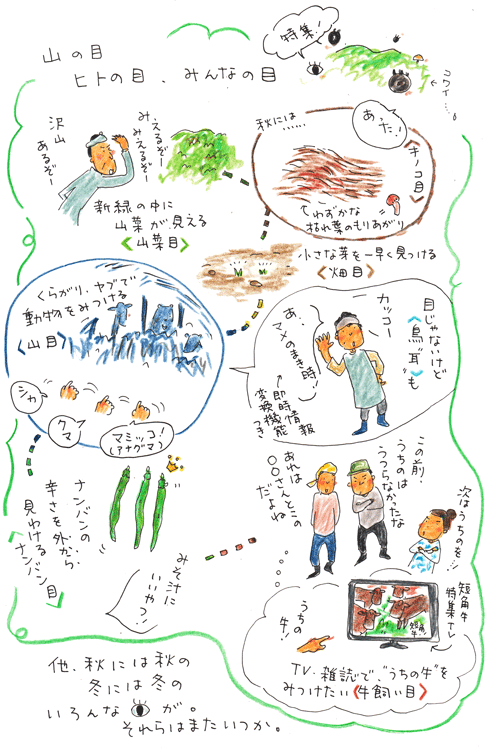 山の目
ヒトの目、みんなの目
特集!
コワイ…。
沢山
あるぞー
みえるぞー
みえるぞー
新緑の中に
山菜が見える
《山菜目》
秋には……
あった!
《キノコ目》
わずかな
枯れ葉のもりあがり
小さな芽を一早く見つける
《畑目》
くらがり・ヤブで
動物をみつける
《山目》
シカ
クマ
マミッコ!
(アナグマ)
目じゃないけど
《鳥"耳"》も
カッコー
あ、
マメのまき時!
↑即時情報
変換機能
つき
ナンバンの
辛さを外から
見わける
《ナンバン目》
みそ汁に
いいやつ!
この前、
うちのは
うつらなかったな
あれは
○○さんとこの
だよね
次はうちのを!!
短角牛
特集TV
短角牛
うちの
牛!
TV・雑誌で、"うちの牛"を
みつけたい《牛飼い目》
他、秋には秋の
冬には冬の
いろんな が。
それらはまたいつか。